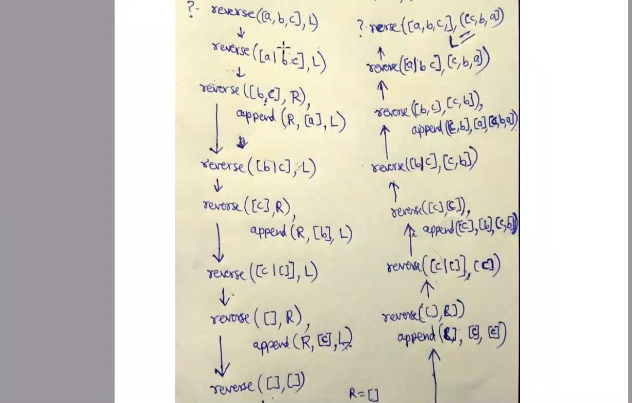 ?- reverse([a,b,c],L)
reverse([a|b c],L)
reverse([b,c],R),
append(R,[a],L)
reverse([b|c],L)
reverse([c],R),
append(R,[b],L)
reverse([c|[]],L)
reverse([],R),
append(R,[c],L)
reverse([],[])
R=[]
reverse([a|b c],[c,b,a])
reverse([b,c],[c,b]),
append([c,b],[a],[c,b,a])
reverse([b|c],[c,b])
reverse([c],[c]),
append([c],[b],[c,b])
reverse([c|[]],[c])
reverse([],R)